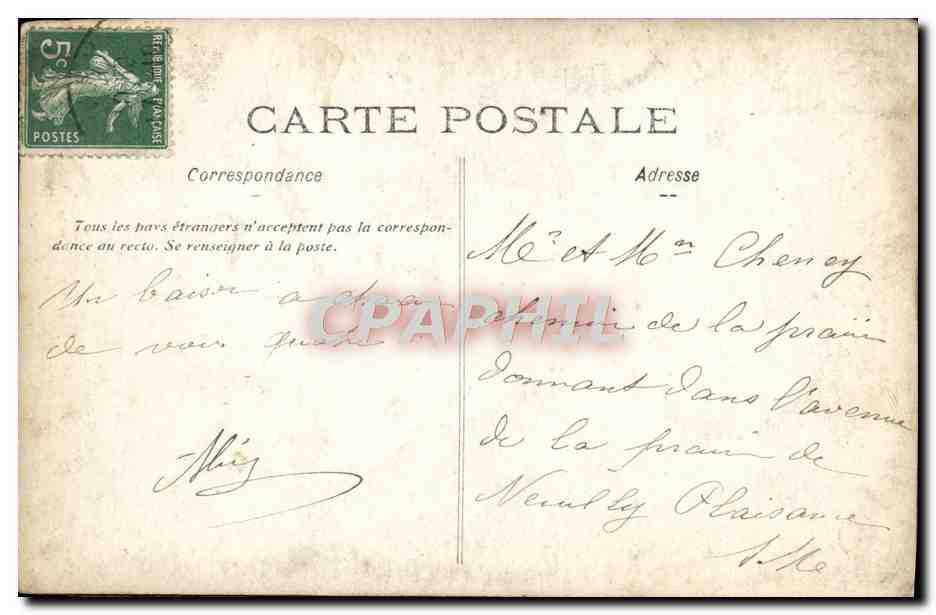 RÉPUBLIQUE FRANÇAISE
5c
POSTES
CARTE POSTALE
Correspondance
Tous les pays étrangers n'acceptent pas la correspon-
dance au recto. Se renseigner à la poste.
Un baiser a
de vous
Adresse
Mr et Mm Cheney
chemin de la prairie
donnant dans l'avenue
de la prairie de
Neuilly Plaisance
CPAPHIL